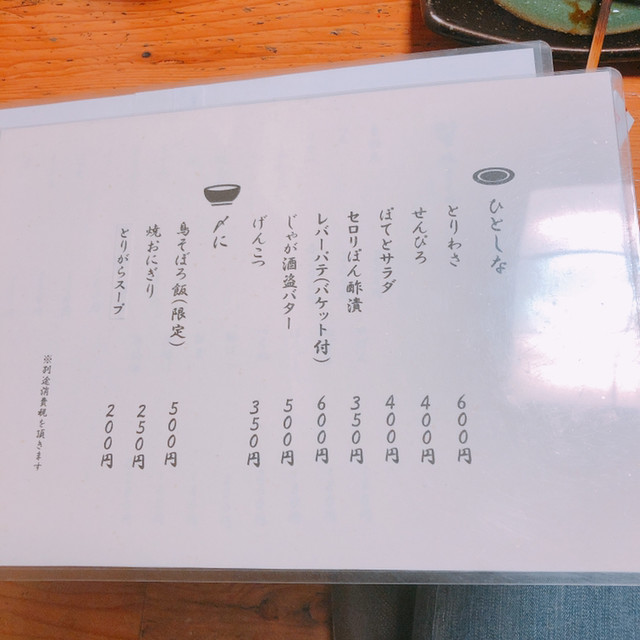 ひとしな
とりわさ 600円
せんぴろ 400円
ぽてとサラダ 400円
セロリぽん酢漬 350円
レバーパテ(バケット付) 600円
じゃが酒盗バター 500円
げんこつ 350円
〆に
鳥そぼろ飯(限定) 500円
焼おにぎり 250円
とりがらスープ 200円
※別途消費税を頂きます